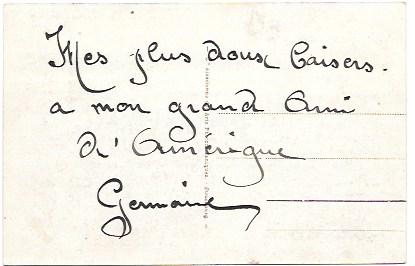 Mes plus doux baisers.
a mon grand Ami
d'Amérique
Germaine